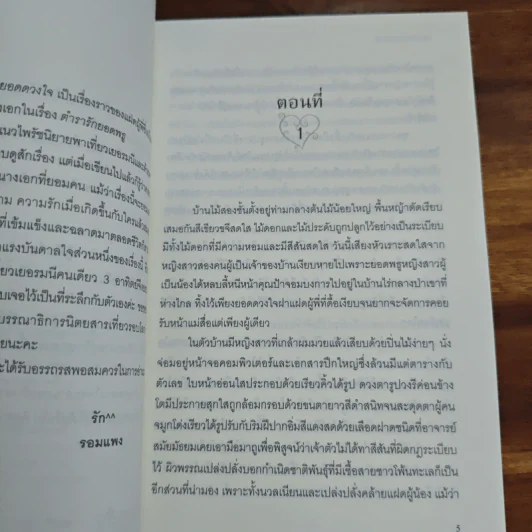 ยอดดวงใจ เป็นเรื่องราวของแฝดผู้พี่
งเอกในเรื่อง ตำรารักยอดพธู
แนวไพรัชนิยายพาเที่ยวเยอรมนี
บดูสักเรื่อง แต่เมื่อเขียนไปแล้วก็
นางเอกที่ยอมคน แม้ว่าเรื่องนี้จะ
าม ความรักเมื่อเกิดขึ้นกับใครแล้ว
ที่เข้มแข็งและฉลาดมาตลอดชีวิต
แรงบันดาลใจส่วนหนึ่งของเรื่องนี้
ที่ยวเยอรมนีคนเดียว 3 อาทิตย์
บเจอไว้เป็นที่ระลึกกับตัวเองค่ะ
บรรณาธิการนิตยสารเที่ยวรอบโลก
ยนะคะ
ะได้รับอรรถรสพอสมควรในการอ่าน
รัก^^
รอมแพง
ตอนที่
1
บ้านไม้สองชั้นตั้งอยู่ท่ามกลางต้นไม้น้อยใหญ่ พื้นหญ้าตัดเรียบ
เสมอกันสีเขียวขจีสดใส ไม้ดอกและไม้ประดับถูกปลูกไว้อย่างเป็นระเบียบ
มีทั้งไม้ดอกที่มีความหอมและมีสีสันสดใส วันนี้เสียงหัวเราะสดใสจาก
หญิงสาวสองคนผู้เป็นเจ้าของบ้านเงียบหายไปเพราะยอดพธูหญิงสาวผู้
เป็นน้องได้หลบลี้หนีหน้าคุณป้าจอมบงการไปอยู่ในบ้านไร่กลางป่าเขาที่
ห่างไกล ทิ้งไว้เพียงยอดดวงใจฝาแฝดผู้พี่ที่ดื้อเงียบจนยากจะจัดการคอย
รับหน้าแม่สื่อแต่เพียงผู้เดียว
ในตัวบ้านมีหญิงสาวที่เกล้าผมมวยแล้วเสียบด้วยปิ่นไม้ง่ายๆ นั่ง
จ่อมอยู่หน้าจอคอมพิวเตอร์และเอกสารปึกใหญ่ซึ่งล้วนมีแต่ตารางกับ
ตัวเลข ใบหน้าอ่อนใสประกอบด้วยเรียวคิ้วได้รูป ดวงตารูปวงรีค่อนข้าง
โตมีประกายสุกใสถูกล้อมกรอบด้วยขนตายาวสีดำสนิทจนสะดุดตาผู้คน
จมูกโด่งเรียวได้รูปรับกับริมฝีปากอิ่มสีแดงสดด้วยเลือดฝาดชนิดที่อาจารย์
สมัยมัธยมเคยเอามือมาถูเพื่อพิสูจน์ว่าเจ้าตัวไม่ได้ทาสีสันที่ผิดกฎระเบียบ
ไว้ ผิวพรรณเปล่งปลั่งบอกกำเนิดชาติพันธุ์ที่มีเชื้อสายชาวโพ้นทะเลก็เป็น
อีกส่วนที่น่ามอง เพราะทั้งนวลเนียนและเปล่งปลั่งคล้ายแฝดผู้น้อง แม้ว่า
5